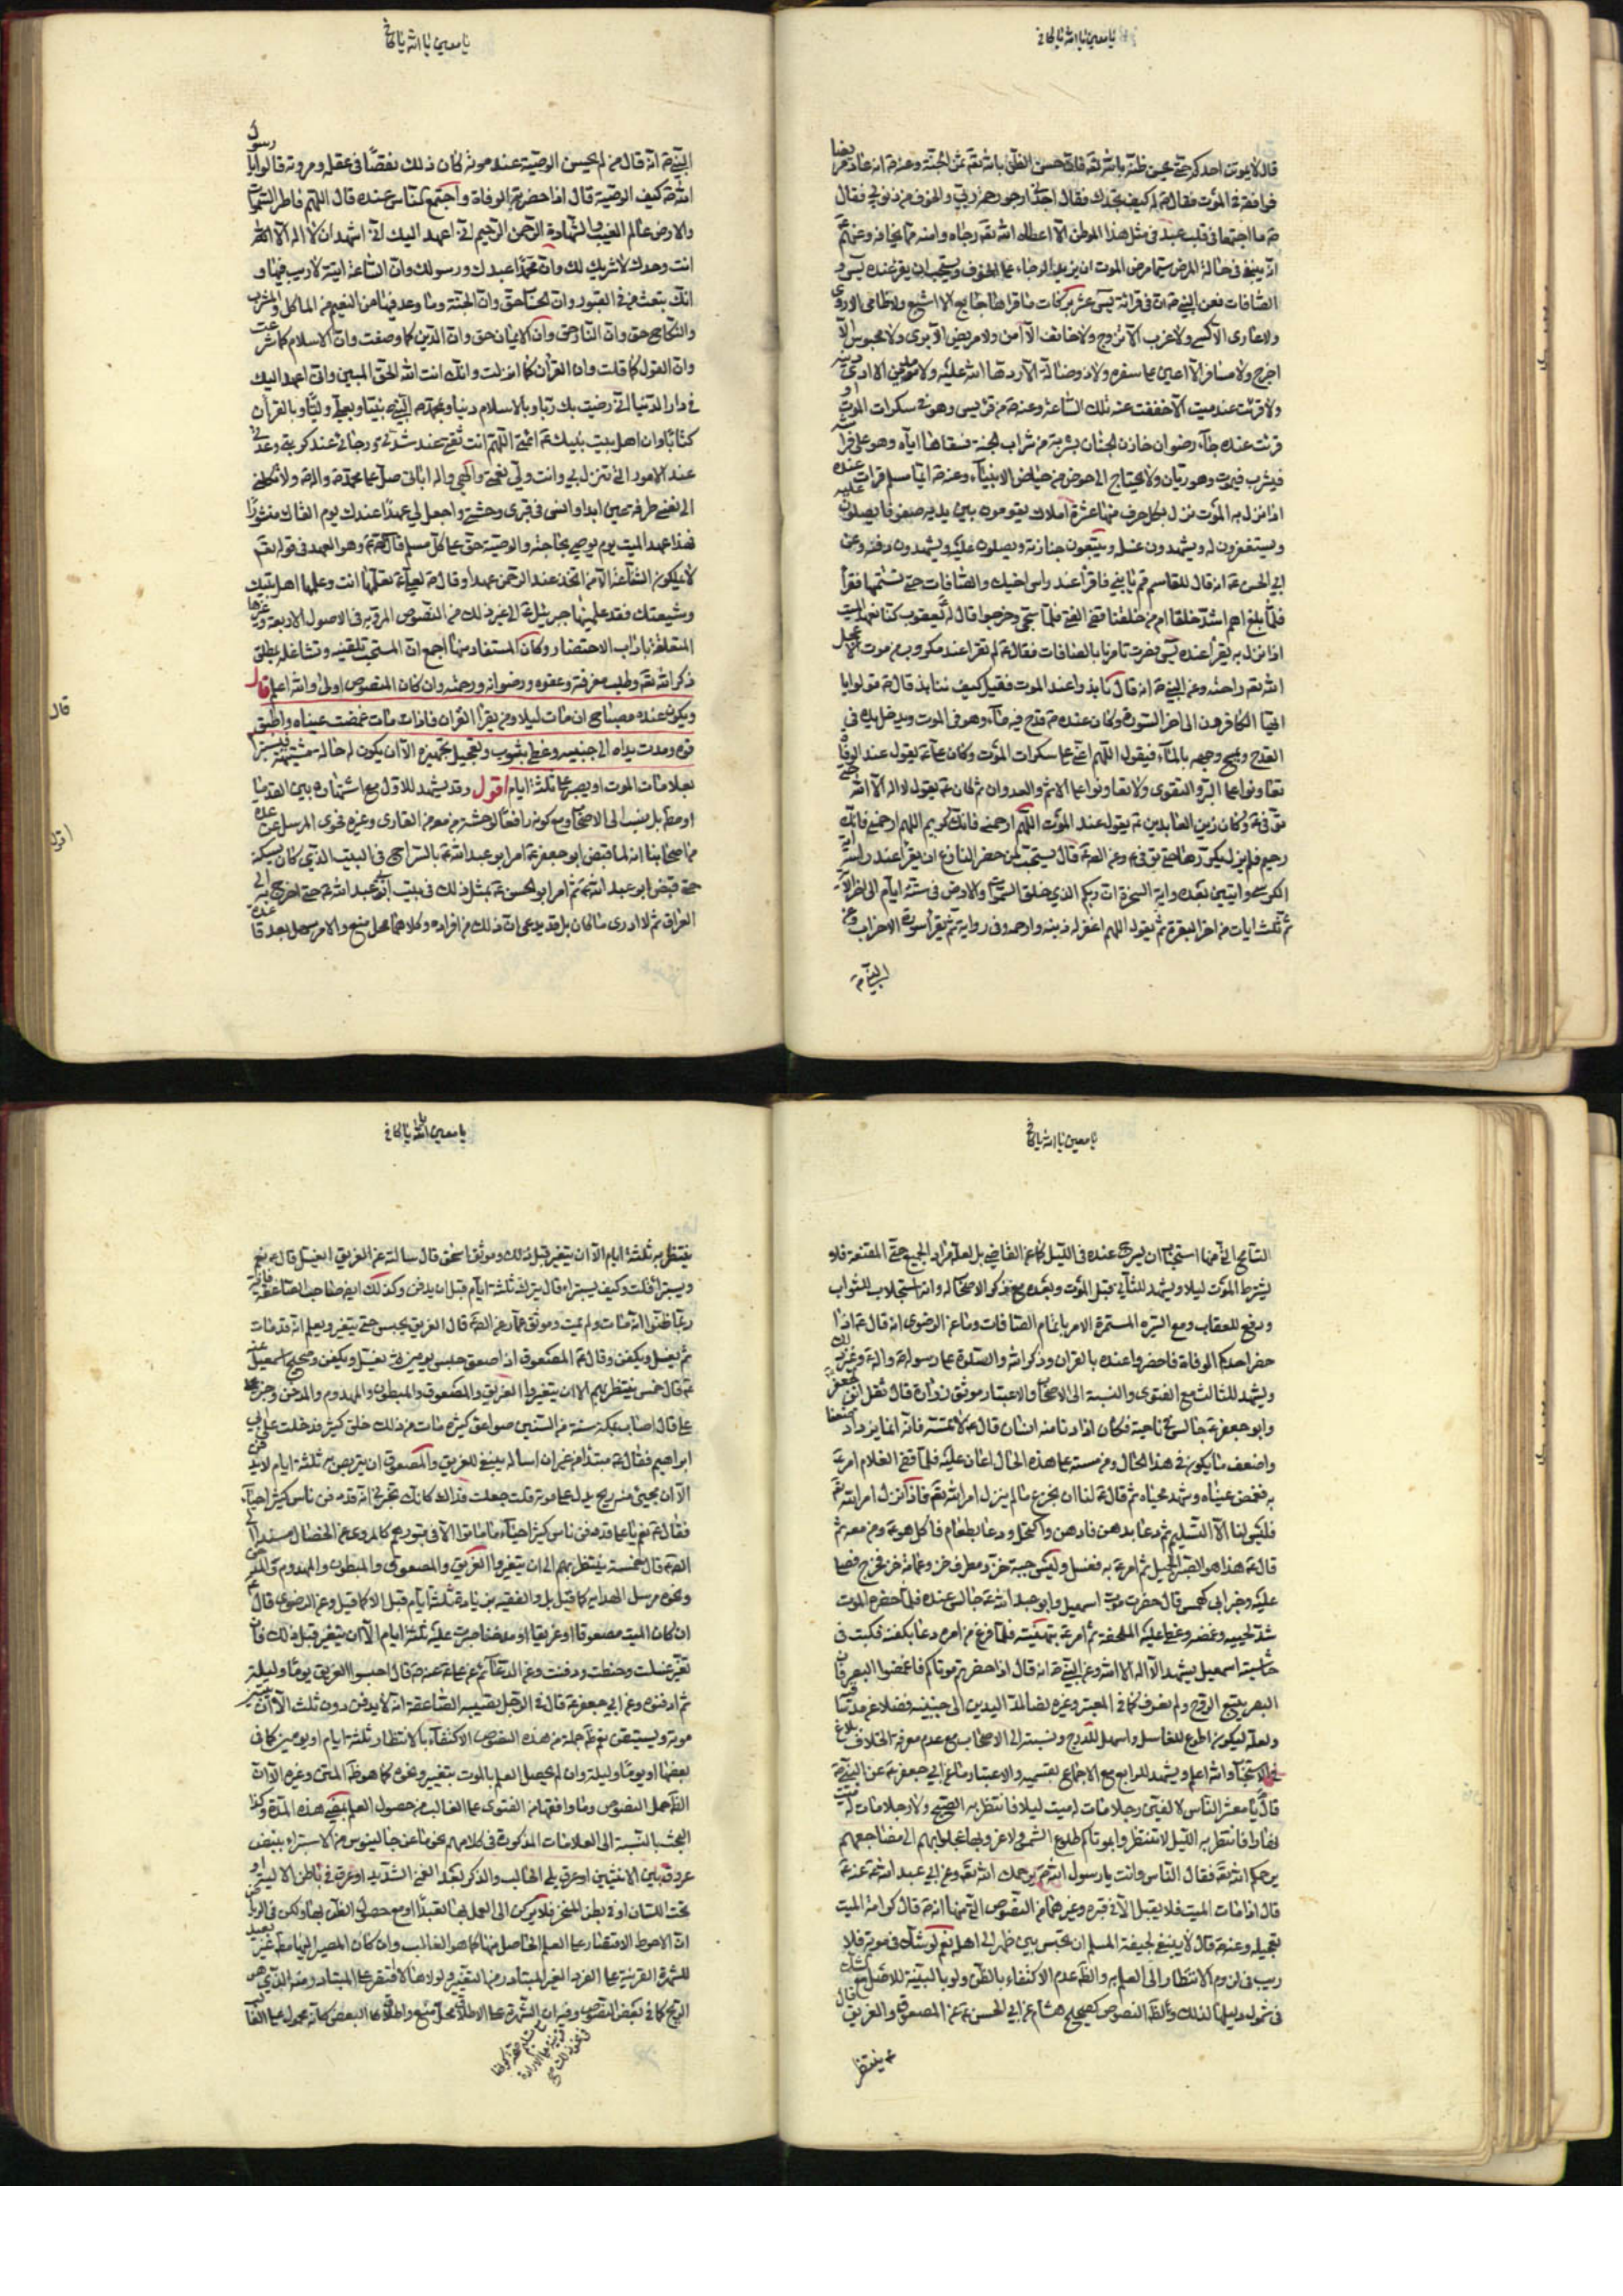 يا معين يا الله يا كافي
قال لا يموتن احدكم حتى يحسن ظنه بالله تعه فان حسن الظن بالله تعه ثمن الجنة وعنه انه عاد مريضا
فوافقه في الموت فقال له كيف تجدك فقال اجدني ارجو رحمة ربي واخوف من ذنوبي فقال
ص ما اجتمعا في قلب عبد في مثل هذا الموطن الا اعطاه الله تعه رجاه وامنه مما يخافه
انه ينبغي في حالة المرض سيما مرض الموت ان يزيد الرجاء على الخوف ويستحب ان يقرء عنده يس و
الصافات فعن النبي ص ان في قرائة يس عشر بركات ما قراها جايع الا اشبع ولا ظامى الا روى
ولا عارى الا كسى ولا عزب الا تزوج ولا خائف الا امن ولا مريض الا برى ولا محبوس الا
اخرج ولا مسافر الا اعين على سفره ولا ضالة الا ردها الله عليه ولا مديون الا ادى دينه
ولا قرئت عند ميت الا خففت عنه تلك الساعة وعنه ص من قرء يس وهو في سكرات الموت او
قرئت عنده جاء رضوان خازن الجنان بشربة من شراب الجنة فسقاها اياه وهو على فراشه
فيشرب فيموت وهو ريان ولا يحتاج الى حوض من حياض الانبياء وعنه ايما مسلم قرات عنده
اذا نزل به الموت نزل بكل حرف منها عشرة املاك يقومون بين يديه صفوفا يصلون عليه
ويستغفرون له ويشهدون غسله ويتبعون جنازته ويصلون عليه ويشهدون دفنه وعن
ابي الحسن ع انه قال للقاسم قم يا بني فاقرا عند راس اخيك والصافات حتى تستتمها فقرأ
فلما بلغ اهم اشد خلقا ام من خلقنا قضى الفتى فلما سجى وخرجوا قال له يعقوب كنا نعهد الميت
اذا نزل به يقرأ عنده يس فصرت تامرنا بالصافات فقال ع لم تقرا عند مكروب من موت الا عجل
الله تعه راحته وعن النبي ص انه قال نابذوا عند الموت فقيل كيف ننابذ قال ص قولوا يا
ايها الكافرون الى اخر السورة وكان عنده ص قدح فيه ماء وهو في الموت ويدخل يده في
القدح ويمسح وجهه بالماء فيقول اللهم اعني على سكرات الموت وكان ع يقول عند الوفاة
تعاونوا على البر والتقوى ولا تعاونوا على الاثم والعدوان ثم كان ع يقول لا اله الا الله حتى
توفى ع وكان زين العابدين ع يقول عند الموت اللهم ارحمني فانك كريم اللهم ارحمني فانك
رحيم فلم يزل يكررها حتى توفى ع
الكرسي وايتين بعده واية السخرة ان ربكم الذي خلق السموات والارض في ستة ايام الى اخر الآية
ثم ثلث ايات من اخر البقرة ثم يقول اللهم اغفر له ذنبه وارحمه وفى رواية ثم يقرأ سورة الاحزاب وعن
النبي ص
يا معين يا الله يا كافي
النبي ص انه قال من لم يحسن الوصية عند موته كان ذلك نقصا في عقله ومروته قالوا يا رسول
الله ص كيف الوصية قال اذا حضرته الوفاة واجتمع الناس عنده قال اللهم فاطر السموات
والارض عالم الغيب والشهادة الرحمن الرحيم انى اعهد اليك انى اشهد ان لا اله الا الله
انت وحدك لا شريك لك وان محمدا عبدك ورسولك وان الساعة اتية لا ريب فيها و
انك تبعث من في القبور وان الحساب حق وان الجنة وما وعد فيها من النعيم من الماكل والمشرب
والنكاح حق وان النار حق وان الايمان حق وان الدين كما وصفت وان الاسلام كما شرعت
وان القول كما قلت وان القرأن كما انزلت وانك انت الله الحق المبين وانى اعهد اليك
في دار الدنيا انى رضيت بك ربا وبالاسلام دينا وبمحمد ص النبي نبيا وبعلى وليا وبالقرأن
كتابا وان اهل بيت نبيك ع ائمتي اللهم انت ثقتي عند شدتي ورجائي عند كربتي وعدتي
عند الامور التي تنزل بي وانت وليي نعمتي والهي واله ابائي صل على محمد واله ولا تكلني
الى نفسي طرفة عين ابدا وانس في قبري وحشتي واجعل لي عهدا عندك يوم القاك منشورا
فهذا عهد الميت يوم يوصي بحاجته والوصية حق على كل مسلم قال ع وهو العهد في قوله تعه
لا يملكون الشفاعة الا من اتخذ عند الرحمن عهدا وقال ص لعلي ع تعلمها انت وعلمها اهل بيتك
وشيعتك فقد علمنيها جبرئيل ع الى غير ذلك من النصوص المروية في الاصول الاربعة وغيرها
المتعلقة باداب الاحتضار وكان المستفاد منها اجمع ان المستحب تلقينه وتشاغله بمطلق
ذكر الله تعه وطلب مغفرته وعفوه ورضوانه ورحمته وان كان المنصوص اولى والله اعلم قال
ويكون عنده مصباح ان مات ليلا ومن يقرا القران فاذا مات غمضت عيناه واطبق
فوه ومدت يداه الى جنبيه وغطى بثوب وتعجيل تجهيزه الا ان يكون له حالة مشتبهة فيستبرأ
بعلامات الموت او يصبر عليه ثلثة ايام اقول وقد يشهد للاول مع اشتهاره بين القدما
قال
اقول
من اصحابنا انه لما قبض ابو جعفر ع امر ابو عبد الله ع بالسراج في البيت الذي كان يسكنه
حتى قبض ابو عبد الله ع ثم امر ابو الحسن ع بمثل ذلك في بيت ابى عبد الله ع حتى اخرج به الى
العراق ثم لا ادرى ما كان
يا معين يا الله يا كافي
يشترط الموت ليلا ويشهد للثاني قبل الموت وبعده مع ذكر الاصحاب له وانه استجلاب للثواب
ودفع للعقاب ومع السيرة المستمرة الامر باتمام الصافات وما عن الرضوى انه قال ع اذا
حضر احدكم الوفاة فاحضروا عنده بالقران وذكر الله والصلوة على رسوله واله
ويشهد للثالث مع الفتوى والنسبة الى الاصحاب والاعتبار موثق زرارة قال ثقل ابن لجعفر
وابو جعفر ع جالس في ناحية فكان اذا دنا منه انسان قال ع لا تمسه فانه انما يزداد ضعفا
واضعف ما يكون في هذا الحال ومن مسه على هذه الحال اعان عليه فلما قضى الغلام امر ع
به فغمض عيناه وشد لحياه ثم قال ع لنا ان نجزع ما لم ينزل امر الله تعه فاذا نزل امر الله تعه
فليس لنا الا التسليم ثم دعا بدهن فادهن واكتحل ودعا بطعام فاكل هو ع ومن معه ثم
قال ع هذا هو الصبر الجميل ثم امر ع به فغسل ولبس جبة خز ومطرف خز وعمامة خز فخرج فصلى
عليه وخبر ابي كهمس قال حضرت موت اسمعيل وابو عبد الله ع جالس عنده فلما حضره الموت
شد لحييه وغمضه وغطى عليه الملحفة ثم امر ع بتهيئته فلما فرغ من امره دعا بكفنه فكتب في
حاشيته اسمعيل يشهد ان لا اله الا الله وعن النبي ص انه قال اذا حضرتم موتاكم فاغمضوا البصر فان
البصر يتبع الروح ولم نعرف كما في المعتبر وغيره نصا لمد اليدين الى جنبيه فضلا عن
ولعله ليكون اطوع للغاسل واسهل للدرج ونسبته الى الاصحاب مع عدم معرفة الخلاف بلاغ
في الاستحباب والله اعلم ويشهد للرابع مع الاجماع بقسميه والاعتبار ما عن ابي جعفر ع عن النبي ص
قال يا معشر الناس لا الفين رجلا مات له ميت ليلا فانتظر به الصبح ولا رجلا مات له ميت
نهارا فانتظر به الليل لا تنتظروا بموتاكم طلوع الشمس ولا غروبها عجلوا بهم الى مضاجعهم
يرحمكم الله تعه فقال الناس وانت يا رسول الله ص يرحمك الله تعه وعن ابي عبد الله ع عنه ص
قال اذا مات الميت فلا يقيل الا في قبره وغيرهما من النصوص التي منها انه ص قال كرامة الميت
تعجيله وعنه ص قال لا ينبغي لجيفة المسلم ان تحبس بين ظهراني اهله نعم لو شك في موته فلا
ريب في لزوم الانتظار الى العلم به والظ عدم الاكتفاء بالظن ولو بالبينة للاصل
في شمول دليلها لذلك وظ النصوص كصحيح هشام عن ابي الحسن ع عن المصعوق والغريق قال
ع ينتظر
يا معين يا الله يا كافي
ينتظر به ثلثة ايام الا ان يتغير قبل ذلك وموثق اسحق قال سالته عن الغريق ايغسل قال ع نعم
ويستبرأ قلت وكيف يستبرأ قال يترك ثلثة ايام قبل ان يدفن وكذلك ايض صاحب الصاعقة فانه
ربما ظنوا انه مات ولم يمت وموثق عمار عن الص قال الغريق يحبس حتى يتغير ويعلم انه قد مات
ثم يغسل ويكفن وقال ع المصعوق اذا صعق حبس يومين ثم يغسل ويكفن
ع قال خمس ينتظر بهم الا ان يتغيروا الغريق والمصعوق والمبطون والمهدوم والمدخن
قال اصاب بمكة سنة من السنين صواعق كثيرة مات من ذلك خلق كثير فدخلت على ابي
ابراهيم فقال ع مبتدأ من غير ان اساله ينبغي للغريق والمصعوق ان يتربص به ثلثة ايام لا يدفن
الا ان يجيئ منه ريح يدل على موته قلت جعلت فداك كانك تخبرني انه قد دفن ناس كثير احياء
فقال ع نعم يا علي قد دفن ناس كثير احياء ما ماتوا الا في قبورهم كالمروى عن الخصال مسندا الى
الص ع قال خمسة ينتظر بهم الى ان يتغيروا الغريق والمصعوق والمبطون والمهدوم والمدخن
ان كان الميت مصعوقا او غريقا او مدخنا صبرت عليه ثلثة ايام الا ان يتغير قبل ذلك فان
تغير غسلت وحنطت ودفنت وعن الدعائم عن علي ع عنه ص قال احبسوا الغريق يوما وليلة
ثم ادفنوه وعن ابي جعفر ع قال في الرجل تصيبه الصاعقة انه لا يدفن دون ثلث الا ان يتبين
موته ويستيقن نعم ظ جملة من هذه النصوص الاكتفاء بالانتظار ثلثة ايام او يومين كما في
بعضها او يوما وليلة وان لم يحصل العلم بالموت بتغيير ونحوه كما هو ظ المتن وغيره الا ان
الظ حمل النصوص وما وافقها من الفتوى على الغالب من حصول العلم بمضي هذه المدة وكذا
البحث بالنسبة الى العلامات المذكورة في كلامهم نحو ما عن جالينوس من الاستبراء بنبض
عروق بين الانثيين او عرق يلي الحالب والذكر بعد الغمز الشديد او عرق في باطن الالية او
تحت اللسان او في بطن المنخر فلا يركن الى العمل بها تعبدا او مع حصول الظن بها
ان الاحوط الاقتصار على العلم الحاصل منها كما هو الغالب